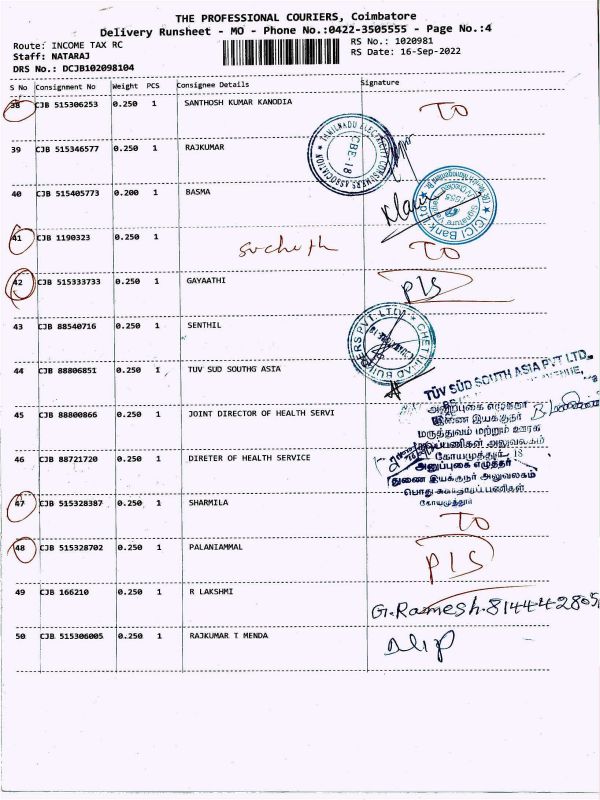 THE PROFESSIONAL COURIERS, Coimbatore
Delivery Runsheet - MO - Phone No.:0422-3505555 - Page No.:4
Route: INCOME TAX RC
RS No.: 1020981
Staff: NATARAJ
RS Date: 16-Sep-2022
DRS No.: DCJB102098104
S No Consignment No Weight PCS Consignee Details Signature
38 CJB 515306253 0.250 1 SANTHOSH KUMAR KANODIA TO
39 CJB 515346577 0.250 1 RAJKUMAR
TAMILNADU ELECTRICITY CONSUMERS ASSOCIATION
CBE-18
40 CJB 515405773 0.200 1 BASMA
ICICI Bank
41 CJB 1190323 0.250 1 TO
42 CJB 515333733 0.250 1 GAYAATHI PLS
43 CJB 88540716 0.250 1 SENTHIL
CHETTINAD BUILDERS PVT. LTD.
44 CJB 88806851 0.250 1 TUV SUD SOUTHG ASIA
TÜV SÜD SOUTH ASIA PVT LTD.
45 CJB 88800866 0.250 1 JOINT DIRECTOR OF HEALTH SERVI
அனுப்புகை எழுத்தர்
இணை இயக்குநர்
மருத்துவம் மற்றும் ஊரக
நலப்பணிகள் அலுவலகம்
கோயமுத்தூர் 18
46 CJB 88721720 0.250 1 DIRETER OF HEALTH SERVICE
அனுப்புகை எழுத்தர்
துணை இயக்குநர் அலுவலகம்
பொது சுகாதாரப் பணிகள்
கோயமுத்தூர்
47 CJB 515328387 0.250 1 SHARMILA TO
48 CJB 515328702 0.250 1 PALANIAMMAL PLS
49 CJB 166210 0.250 1 R LAKSHMI G.Ramesh.
50 CJB 515306005 0.250 1 RAJKUMAR T MENDA